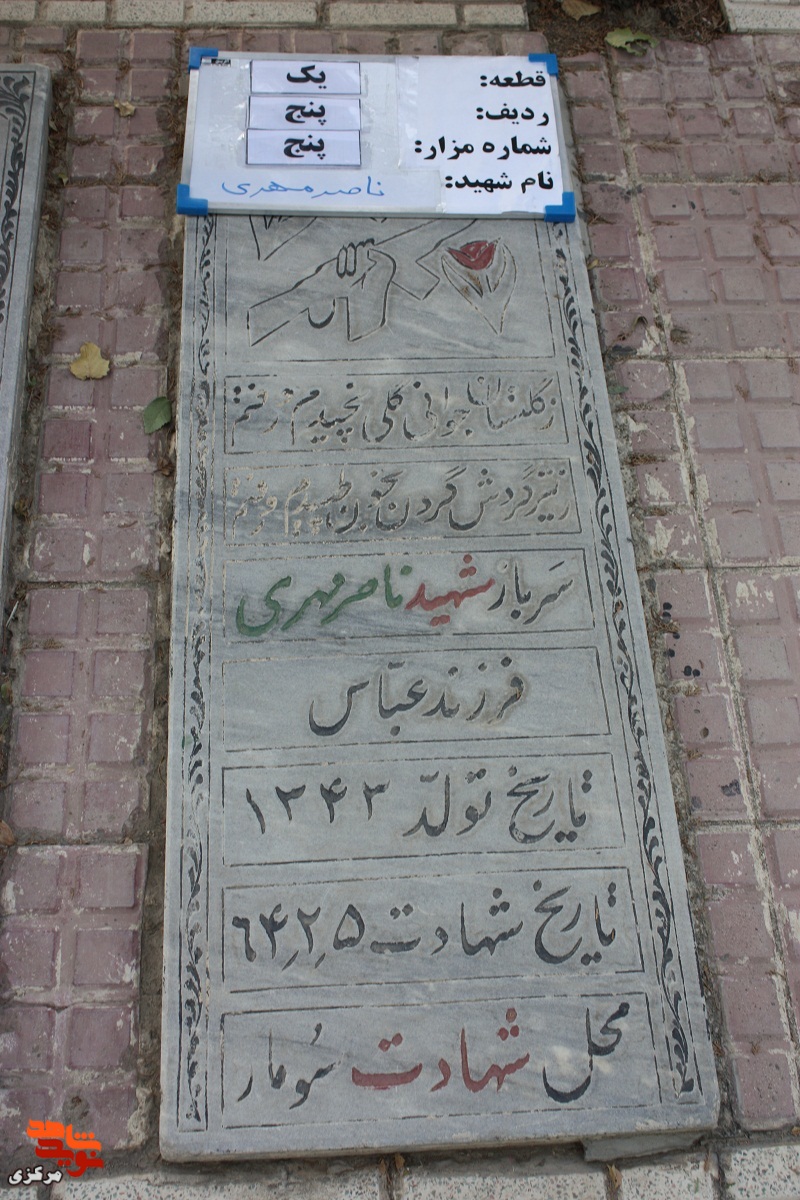 قطعه: یک
ردیف: پنج
شماره مزار: پنج
نام شهید: ناصر مهری
زگلستان جوانی گلی نچیدم رفتم
زتیر گردش گردن بخون طپیدم و رفتم
سرباز شهید ناصر مهری
فرزند عبّاس
تاریخ تولّد ۱۳۴۳
تاریخ شهادت ۶۴٫۲٫۵
محل شهادت سُومار
نوید شاهد
مرکزی